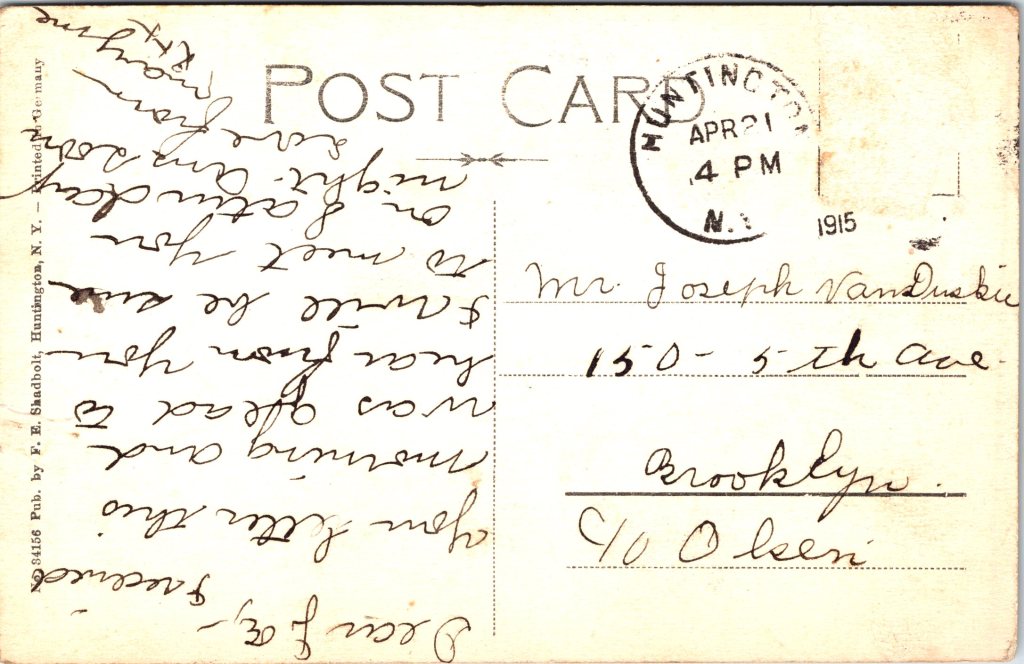 POST CARD
HUNTINGTON
APR 21
4 PM
N.Y.
1915
Mr. Joseph VanDuskie
150 - 5th Ave.
Brooklyn.
C/O Olsen
Dear Joe,-
I received
your letter this
morning and
was glead to
hear from you
I will be sure
to meet you
on Saturday
night. Ans soon
Love from
Mayme
No 34156 Pub. by F. E. Shadbolt, Huntington, N. Y. — Printed in Germany